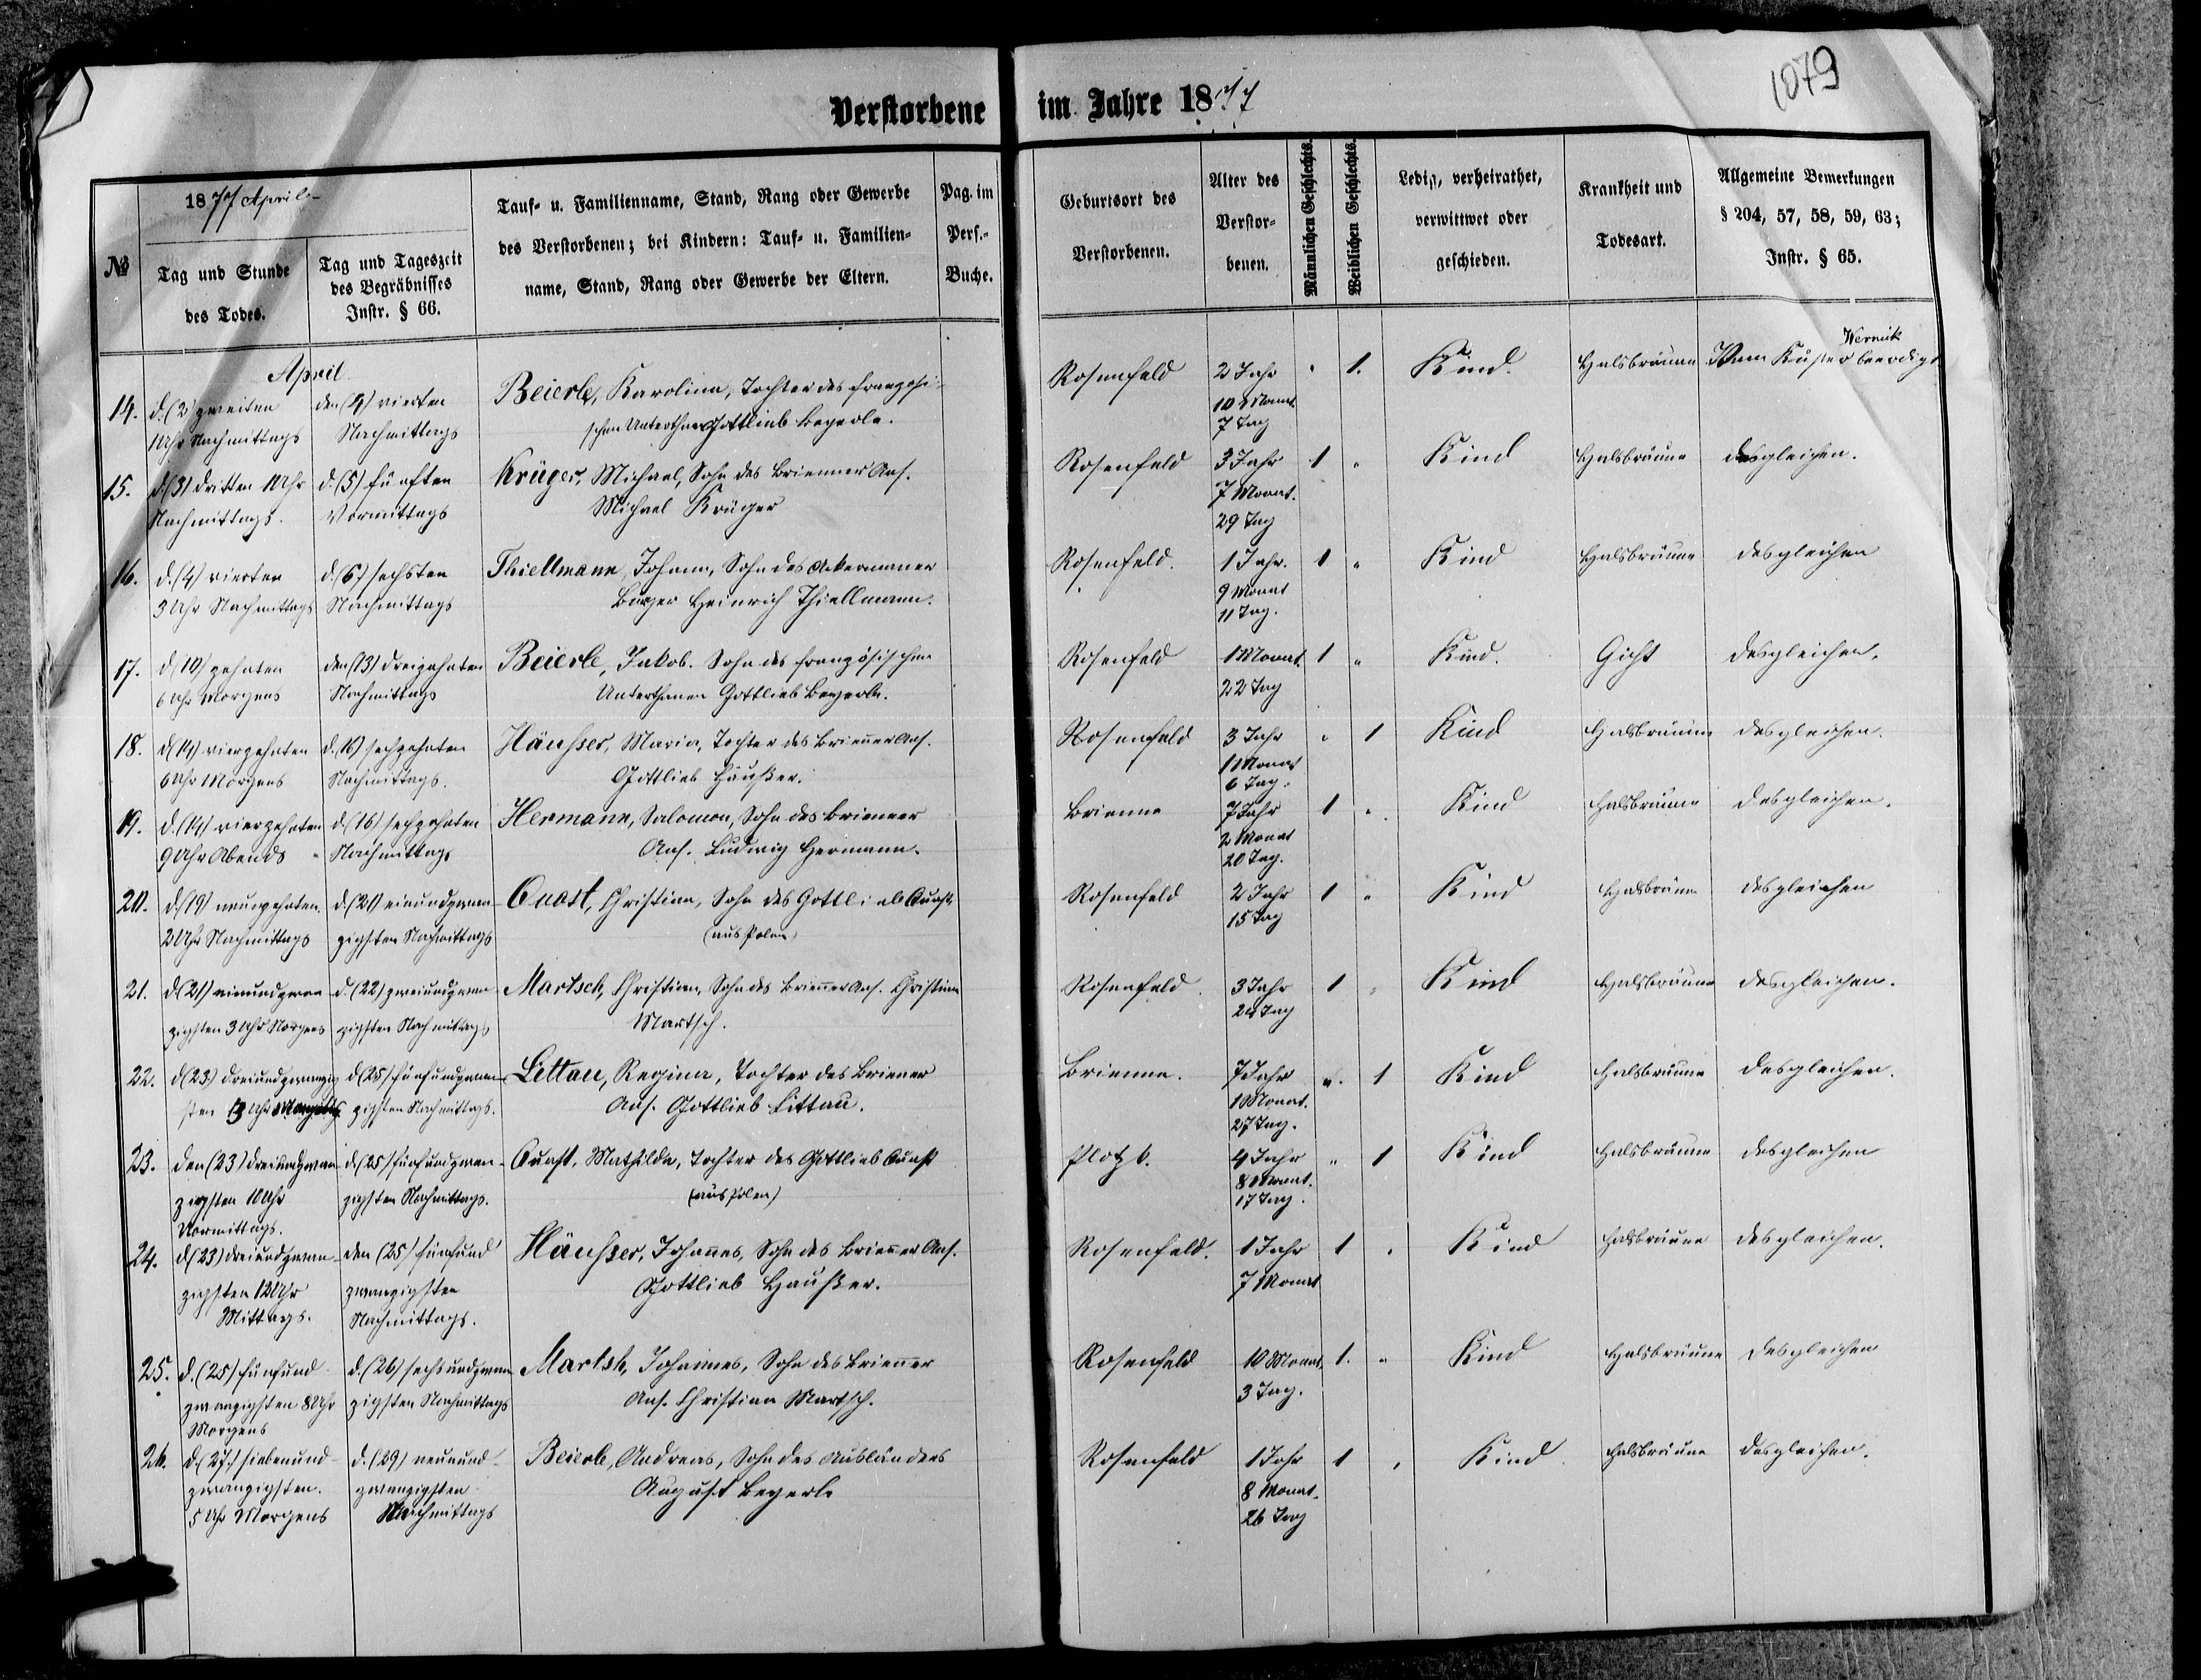 1079
Verstorbene im Jahre 1877
№
1877 April
Tag und Stunde
des Todes.
Tag und Tageszeit
des Begräbnisses
Instr. § 66.
Tauf- u. Familienname, Stand, Rang oder Gewerbe
des Verstorbenen; bei Kindern: Tauf- u. Familien-
name, Stand, Rang oder Gewerbe der Eltern.
Pag. im
Pers.-
Buche.
Geburtsort des
Verstorbenen.
Alter des
Verstor-
benen.
Männlichen Geschlechts.
Weiblichen Geschlechts.
Ledig, verheirathet,
verwittwet oder
geschieden.
Krankheit und
Todesart.
Allgemeine Bemerkungen
§ 204, 57, 58, 59, 63;
Instr. § 65.
April
Wernik
14. d. (2) zweiten den (4) vierten Beierle, Karolina, Tochter des französi- Rosenfeld 2 Jahr " 1. Kind. Halsbräune Vom Küster beerdigt
1 Uhr Nachmittags Nachmittags schen Unterthan Gottlieb Beyerle. 10 Monat
7 Tag
15. d. (3) dritten 1 Uhr d. (5) fünften Krüger, Michael, Sohn des Brienner Ans. Rosenfeld 3 Jahr 1 " Kind Halsbräune desgleichen.
Nachmittags. Vormittags Michael Krüger 7 Monat.
29 Tag
16. d. (4) vierten d. (6) sechsten Thiellmann, Johann, Sohn des Akermanner Rosenfeld. 1 Jahr. 1 " Kind Halsbräune desgleichen
3 Uhr Nachmittags Nachmittags Bürger Heinrich Thiellmann. 9 Monat
11 Tag.
17. d. (10) zehnten den (13) dreizehnten Beierle, Jakob. Sohn des französischen Rosenfeld 1 Monat 1 " Kind. Gicht desgleichen.
6 Uhr Morgens Nachmittags Unterthanen Gottlieb Beyerle. 22 Tag
18. d. (14) vierzehnten d. (16) sechzehnten Häußer, Maria, Tochter des Brienner Ans. Rosenfeld 3 Jahr " 1 Kind Halsbräune desgleichen.
6 Uhr Morgens Nachmittags. Gottlieb Häußer. 1 Monat
6 Tag.
19. d. (14) vierzehnten d. (16) sechzehnten Hermann, Salomon, Sohn des Brienner Brienne 7 Jahr 1 " Kind Halsbräune desgleichen.
9 Uhr Abends Nachmittags Ans. Ludwig Hermann. 2 Monat
20 Tag.
20. d. (19) neunzehnten d. (21) einundzwan- Quast, Christian, Sohn des Gottlieb Quast Rosenfeld 2 Jahr 1 " Kind Halsbräune desgleichen
2 Uhr Nachmittags zigsten Nachmittags (aus Polen) 15 Tag
21. d. (21) einundzwan d. (22) zweiundzwan- Martsch, Christian, Sohn des Brienner Ans. Christian Rosenfeld 3 Jahr 1 " Kind Halsbräune desgleichen.
zigsten 3 Uhr Morgens zigsten Nachmittags Martsch. 24 Tag
22. d. (23) dreiundzwanzig d. (25) fünfundzwan- Littau, Regina, Tochter des Brienner Brienne. 7 Jahr " 1 Kind Halsbräune desgleichen.
sten 3 Uhr Morgens zigsten Nachmittags. Ans. Gottlieb Littau. 1 Monat.
27 Tag.
23. den (23) dreiundzwan- d. (25) fünfundzwan- Quast, Mathilde, Tochter des Gottlieb Quast Plotzk. 4 Jahr " 1 Kind Halsbräune desgleichen
zigsten 10 Uhr zigsten Nachmittags. (aus Polen) 8 Monat.
Vormittags. 17 Tag.
24. d. (23) dreiundzwan- den (25) fünfund Häußer, Johannes, Sohn des Brienner Ans. Rosenfeld. 1 Jahr 1 " Kind Halsbräune desgleichen.
zigsten 12 Uhr zwanzigsten Gottlieb Haußer. 7 Monat
Mittags. Nachmittags.
25. d. (25) fünfund d. (26) sechsundzwan Martsh, Johannes, Sohn des Brienner Rosenfeld 10 Monat. 1. " Kind Halsbräune desgleichen
zwanzigsten 8 Uhr zigsten Nachmittags Ans. Christian Martsch. 3 Tag.
Morgens
26. d. (27) siebenund- d. (29) neunund- Beierle, Andreas, Sohn des Ausländers Rosenfeld 1 Jahr 1 " Kind Halsbräune desgleichen.
zwanzigsten. zwanzigsten August Beyerle 8 Monat.
5 Uhr Morgens Nachmittags 26 Tag